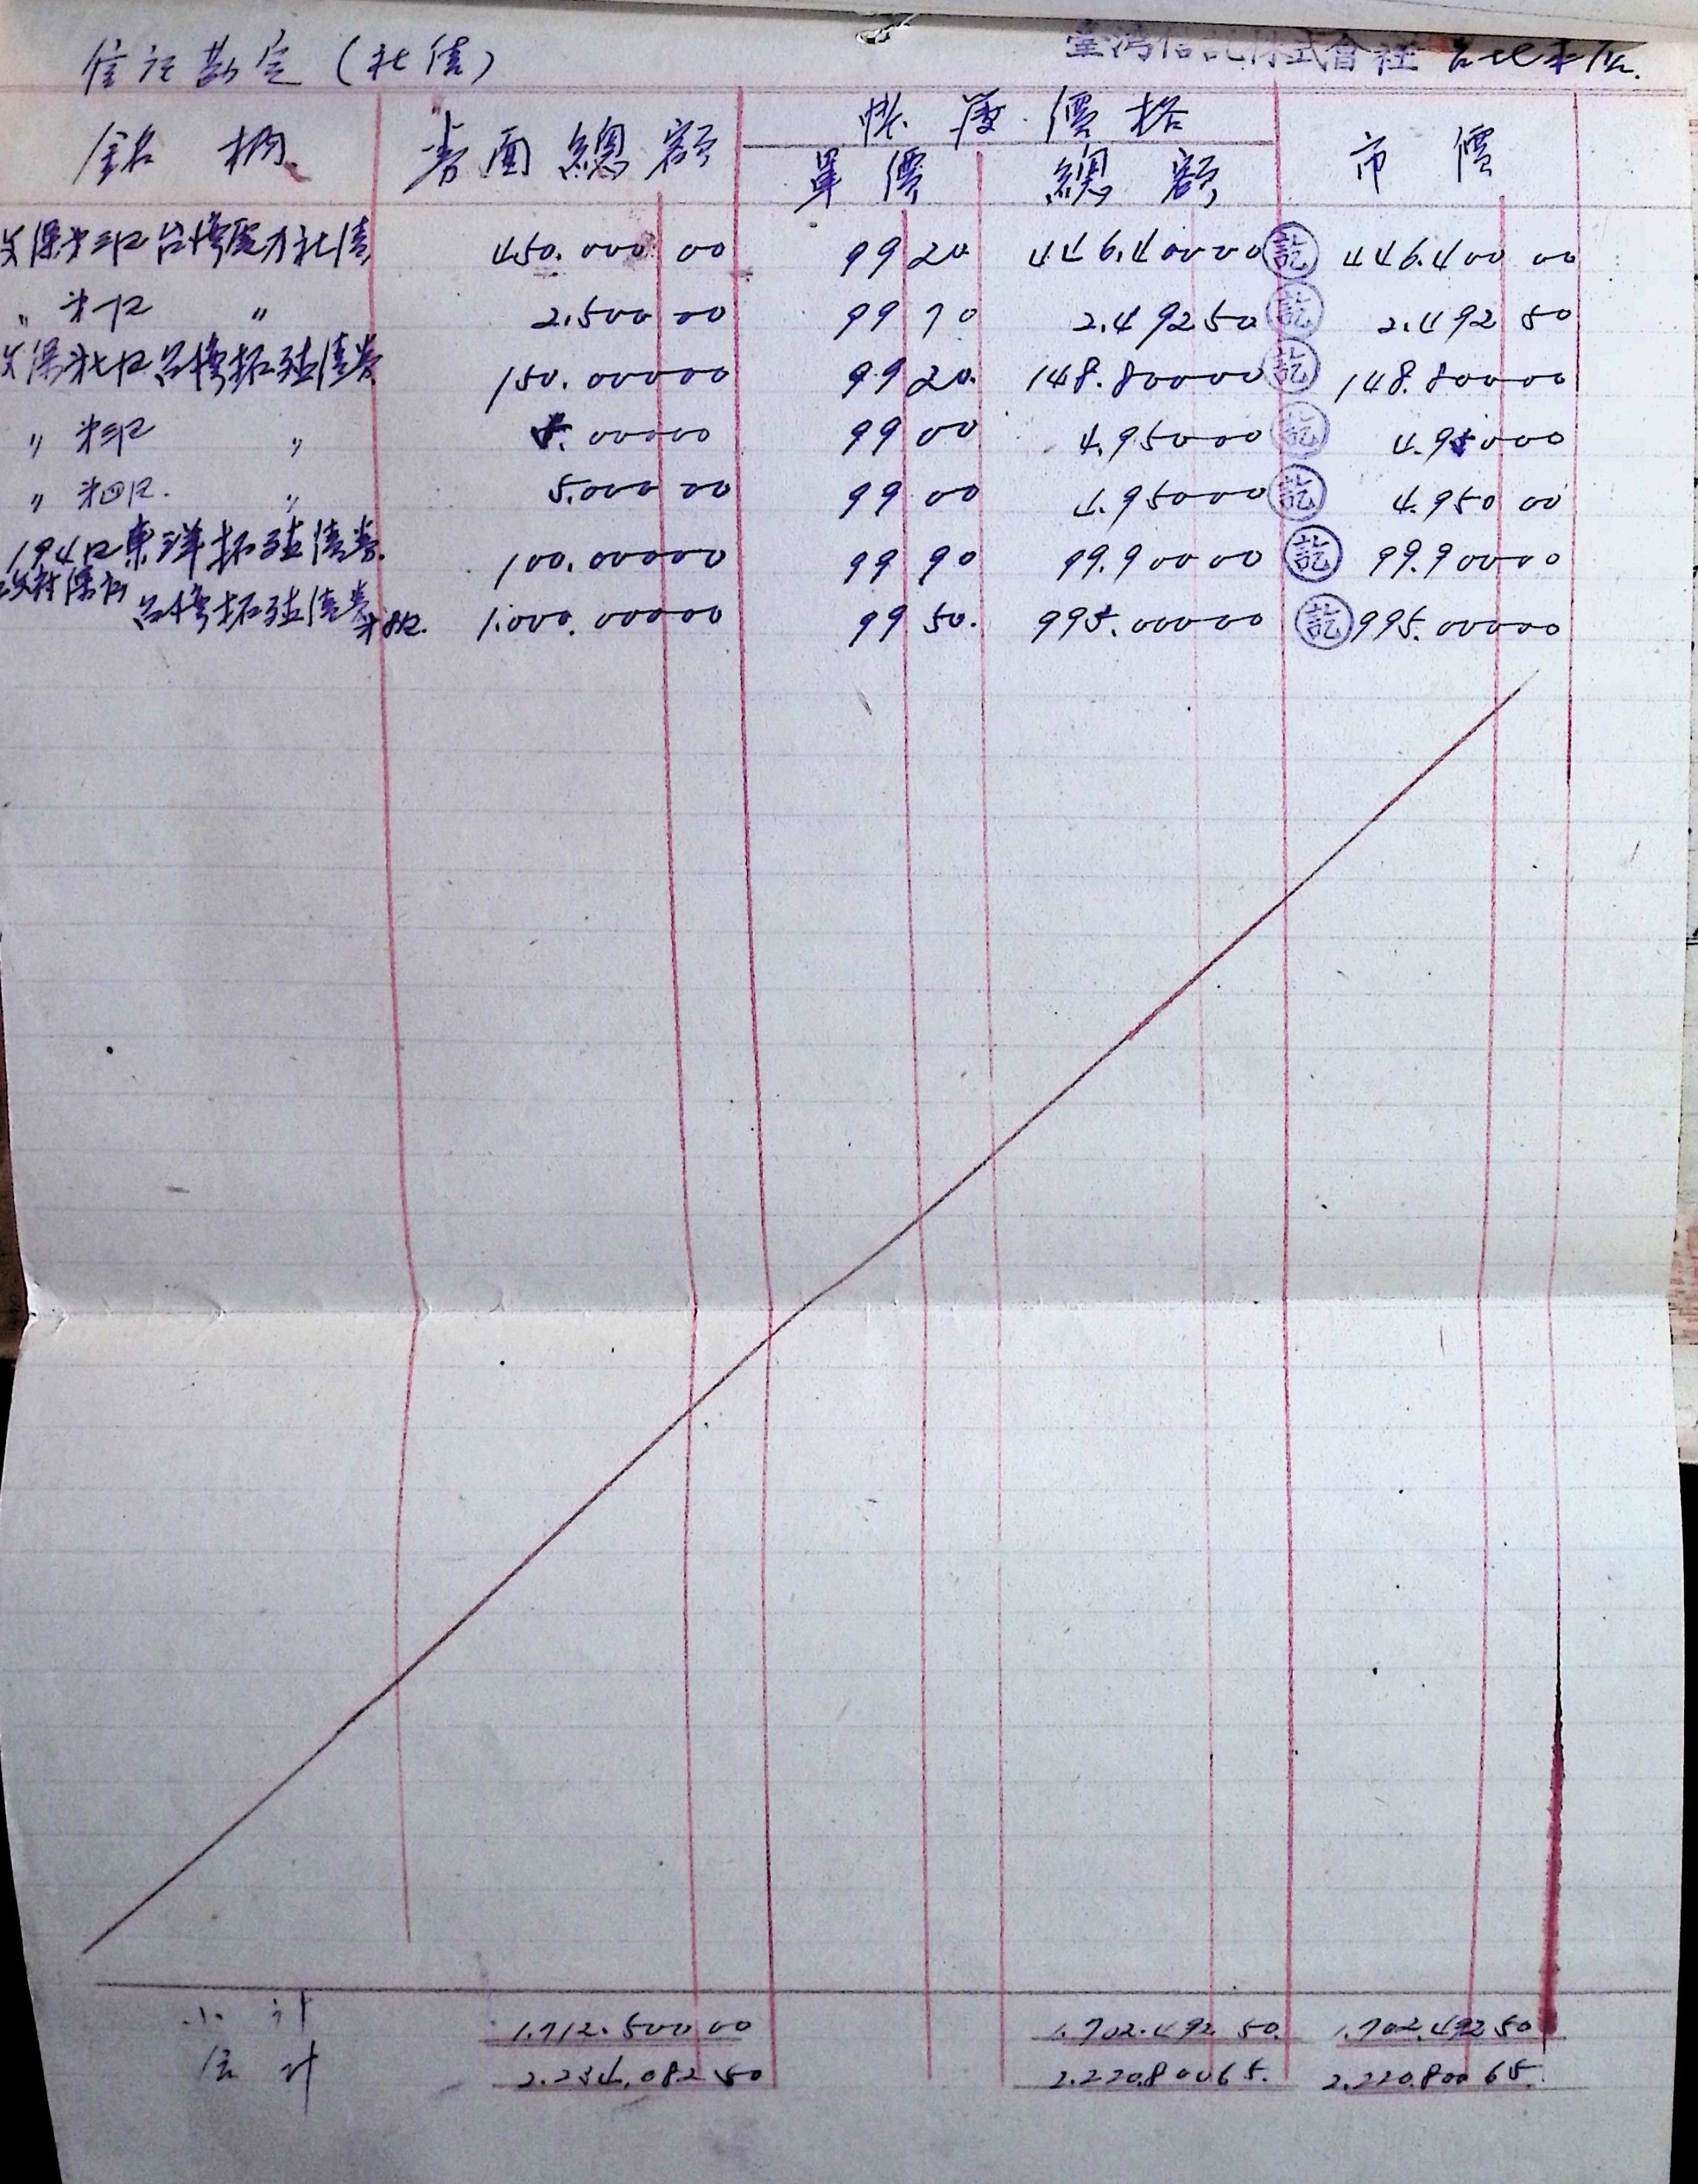 信託勘定（社債） 臺灣信託株式會社 台北本店.
銘柄 券面總額 帳簿價格 市價
單價 總額
政保 台灣電力社債 450.000 00 99 20 446.400 00 訖 446.400 00
〃 〃 2.500 00 99 70 2.492 50 訖 2.492 50
政保 台灣拓殖債券 150.000 00 99 20. 148.800 00 訖 148.800 00
〃 〃 5.000 00 99 00 4.950 00 訖 4.950 00
〃 才四口. 〃 5.000 00 99 00 4.950 00 訖 4.950 00
194口東洋拓殖債券. 100.000 00 99 90 99.900 00 訖 99.900 00
台灣拓殖債券 1.000.000 00 99 50. 995.000 00 訖 995.000 00
小計 1.712.500 00 1.702.492 50. 1.702.492 50
合計 2.234.082 50 2.220.800 65. 2.220.800 65.